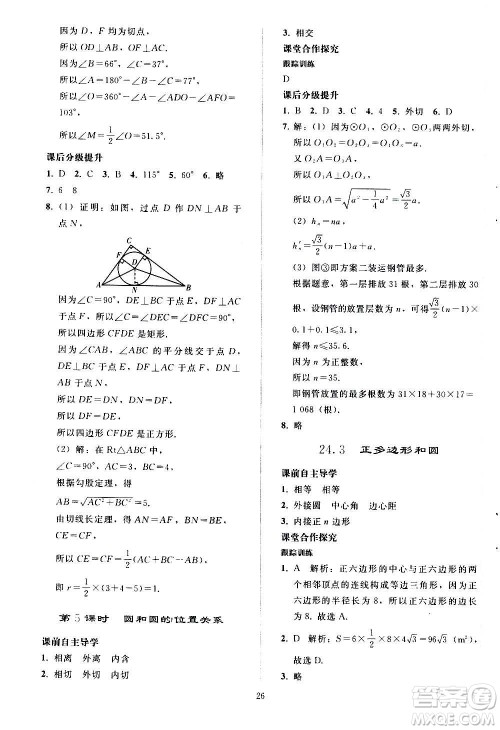 因为 D、F、G 为切点，
所以 OD⊥AB，OF⊥BC，
因为∠B=66°，∠C=37°，
所以∠A=180°-∠B-∠C=77°，
所以∠O=360°-∠A-∠ADO-∠AGO=
103°，
所以∠M=1/2∠O=51.5°．
课后分级提升
1. D 2. C 3. B 4. 115° 5. 60° 6. 略
7. 6 8
8.（1）证明：如图，过点 D 作 DN⊥AB 于
点 N，
C
F E
D
A N B
因为∠C=90°，DE⊥BC 于点 E，DF⊥AC
于点 F，
所以∠C=∠DEC=∠DFC=90°，
所以四边形 CFDE 是矩形．
因为∠CAB，∠ABC 的平分线交于点 D，
DE⊥BC，DF⊥AC，
所以 DE=DN，DF=DN，
所以 DE=DF，
所以四边形 CFDE 是正方形．
（2）解：在 Rt△ABC 中，
因为∠C=90°，AC=3，BC=4，
根据勾股定理，得
AB=√(AC²+BC²)=5．
由切线长定理，得四边形 ABC 的内切圆
半径为 r=1/2(AC+BC-AB)，
即 r=1/2×(3+4-5)=1．
第 5 课时 圆和圆的位置关系
课前自主导学
1. 相离 外离 内含
2. 相切 外切 内切
3. 相交
课堂合作探究
跟踪训练
D
课后分级提升
1. B 2. D 3. D 4. D 5. 外切 6. D
7. 解：（1）因为⊙O₁，⊙O₂，⊙O₃ 两两外切，
所以 O₁O₂=O₂O₃=O₁O₃=a．
又 O₂A=O₃A，
所以 O₁A⊥O₂O₃，
所以 O₁A=√(a²-1/4a²)=√3/2 a．
（2）hₙ=na，
h′ₙ=√3/2(n-1)a+a．
（3）图③即方案二装运钢管最多．
根据题意，第一层排放 31 根，第二层排放 30
根，设钢管的放置层数为 n，可得√3/2(n-1)×
0.1+0.1≤3.1，
解得 n≤35.6．
因为 n 为正整数，
所以 n=35．
即钢管放置的最多根数为 31×18+30×17=
1 068（根）．
8. 略
24.3 正多边形和圆
课前自主导学
1. 相等 相等
2. 外接圆 中心角 边心距
3. 内接正 n 边形
课堂合作探究
跟踪训练
1. A 解析：正六边形的中心与正六边形的两
个相邻顶点的连线构成等边三角形，所以正
六边形的半径长等于正六边形的边长，
故选 A．
2. D 解析：S=6×1/2×8×4√3=96√3（m²），
故选 D．
3. 略
26
答案圈
MXQE.COM